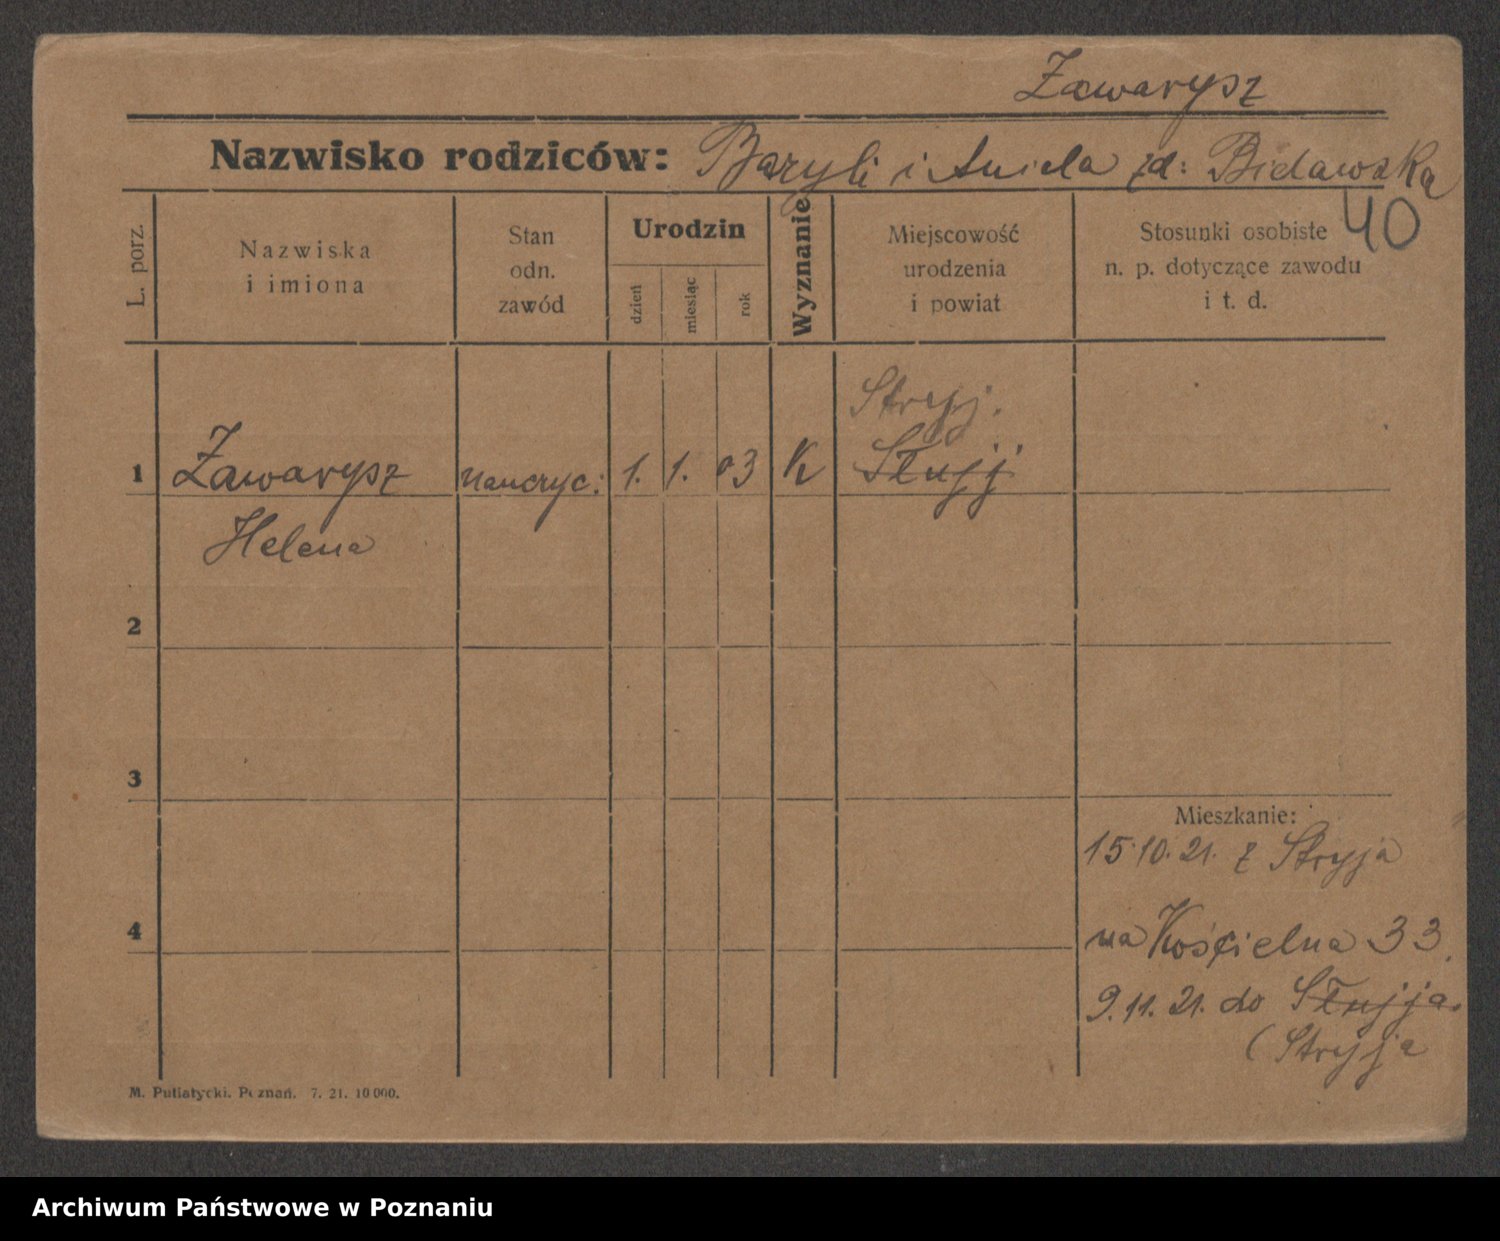 Zawarysz
Nazwisko rodziców: Bazyli i Aniela zd: Bidawska
40
L. porz.
Nazwiska
i imiona
Stan
odn.
zawód
Urodzin
dzień
miesiąc
rok
Wyznanie
Miejscowość
urodzenia
i powiat
Stosunki osobiste
n. p. dotyczące zawodu
i t. d.
Stryj.
1 Zawarysz nauczyc: 1. 1. 03 K Słujj
Helena
2
3
Mieszkanie:
15.10.21. z Stryja
4
na Kościelna 33.
9.11.21. do Słujja.
(Stryja
M. Putiatycki. Poznań. 7. 21. 10 000.
Archiwum Państwowe w Poznaniu